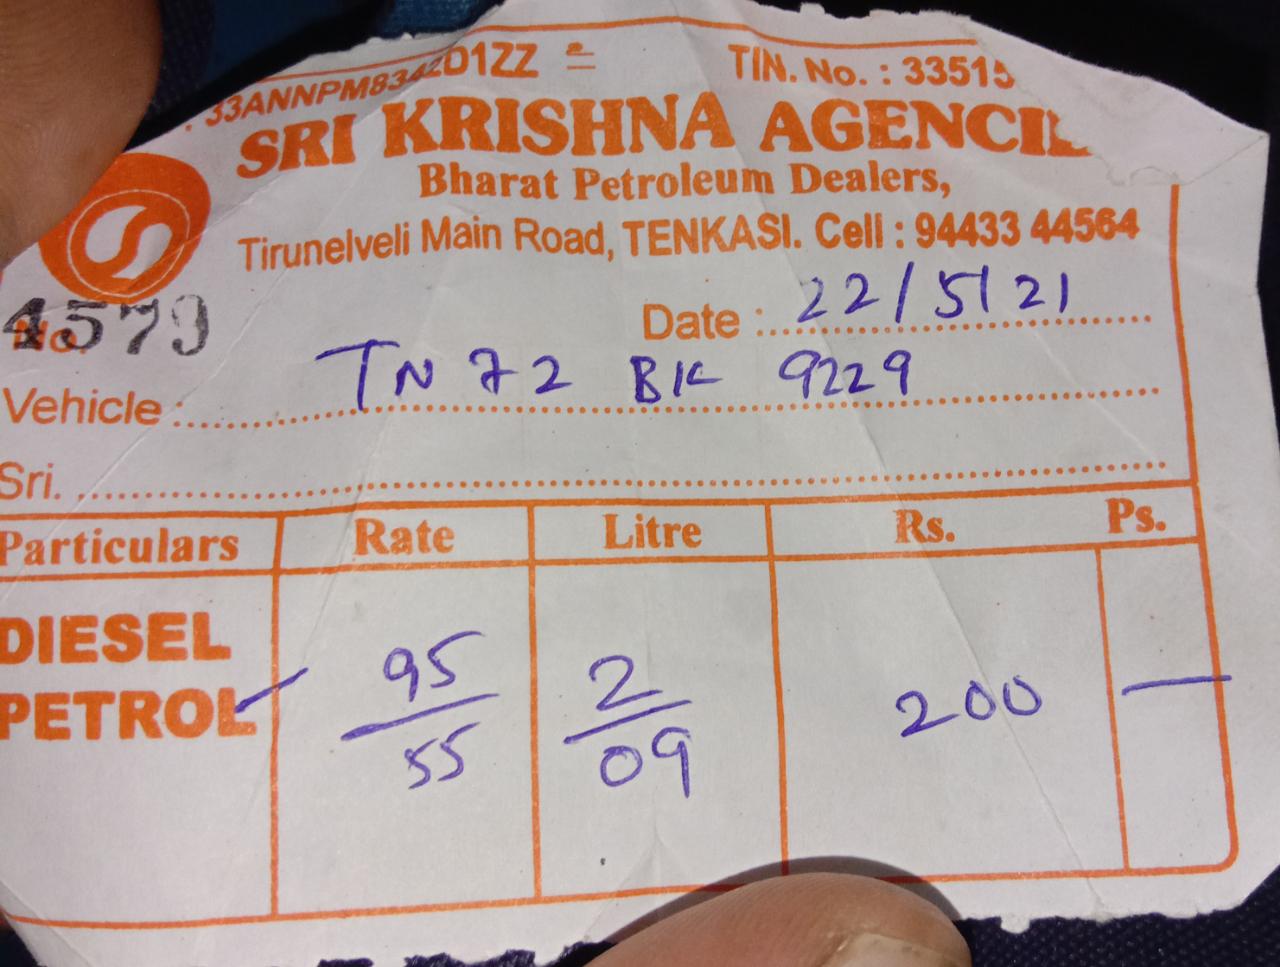 33ANNPM8342D1ZZ
TIN. No. : 33515
SRI KRISHNA AGENCIE
Bharat Petroleum Dealers,
Tirunelveli Main Road, TENKASI. Cell : 94433 44564
No. 4579
Date : 22/5/21
Vehicle : TN 72 BK 9229
Sri.
Particulars Rate Litre Rs. Ps.
DIESEL
PETROL 95/55 2/09 200 —